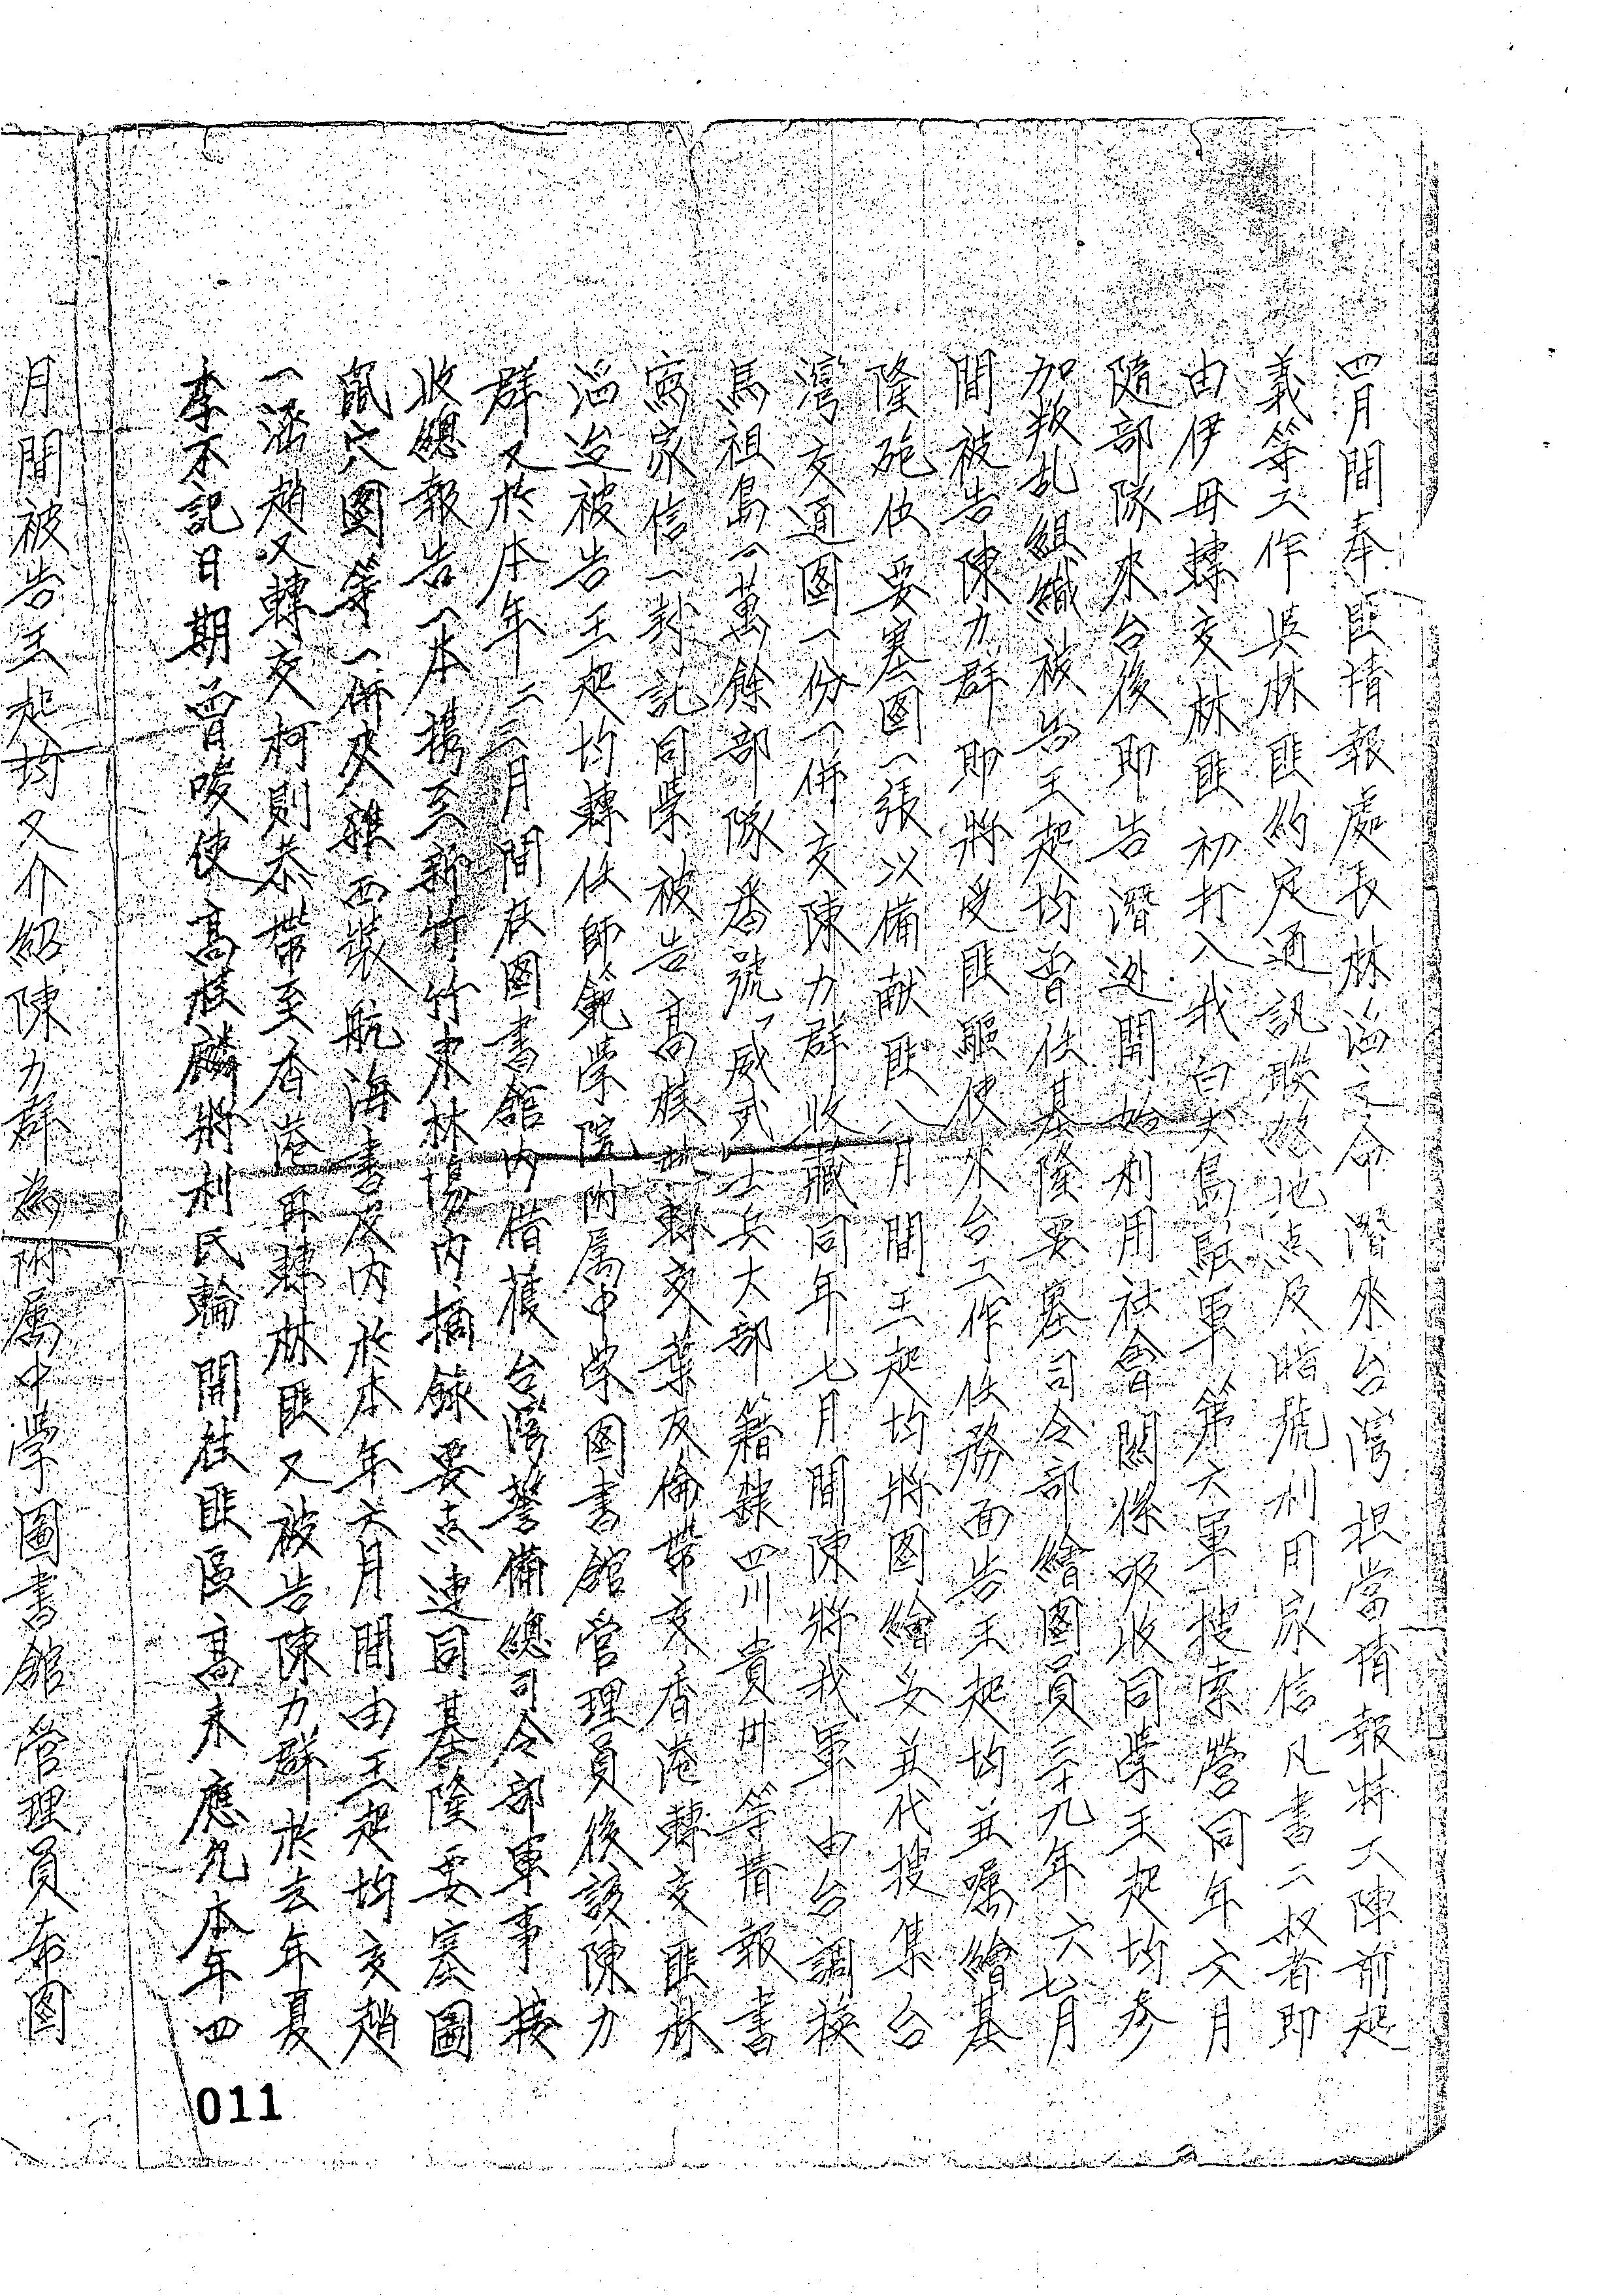 四月間奉匪情報處長林滔之命潛來台灣担當情報特工陳前起
義等工作與林匪約定通訊聯絡地点及暗號利用家信凡書二叔者即
由伊母轉交林匪初打入我白犬島駐軍第六軍搜索營同年六月
隨部隊來台後即告潛逃開始利用社會關係吸收同學王起均參
加叛乱組織被告王起均曾任基隆要塞司令部繪圖員三十九年六七月
間被告陳力群即將受匪驅使來台工作任務面告王起均並囑繪基
隆砲位要塞圖一張以備献匪八月間王起均將圖繪妥並代搜集台
灣交通圖一份一併交陳力群收藏同年七月間陳將我軍由台調換
馬祖島一萬餘部隊番號「威武」士兵大部籍隸四川貴州等情報書
寫家信一封託同學被告高核麟轉交葉友倫帶交香港轉交匪林
滔迨被告王起均轉任師範學院附属中学圖書館管理員後該陳力
群又於本年二三月間在圖書館內借獲台灣警備總司令部軍事接
收總報告一本携至新竹竹東林場內摘錄要点連同基隆要塞圖
鼠穴圖等一併夾雜西裝航海書及內於本年六月間由王起均交趙
一涵趙又轉交柯則恭帶至香港再轉林匪又被告陳力群於去年夏
季不記日期曾唆使高核麟將利民輪開往匪區高未應允本年四
月間被告王起均又介紹陳力群為附属中学圖書館管理員布圖
011